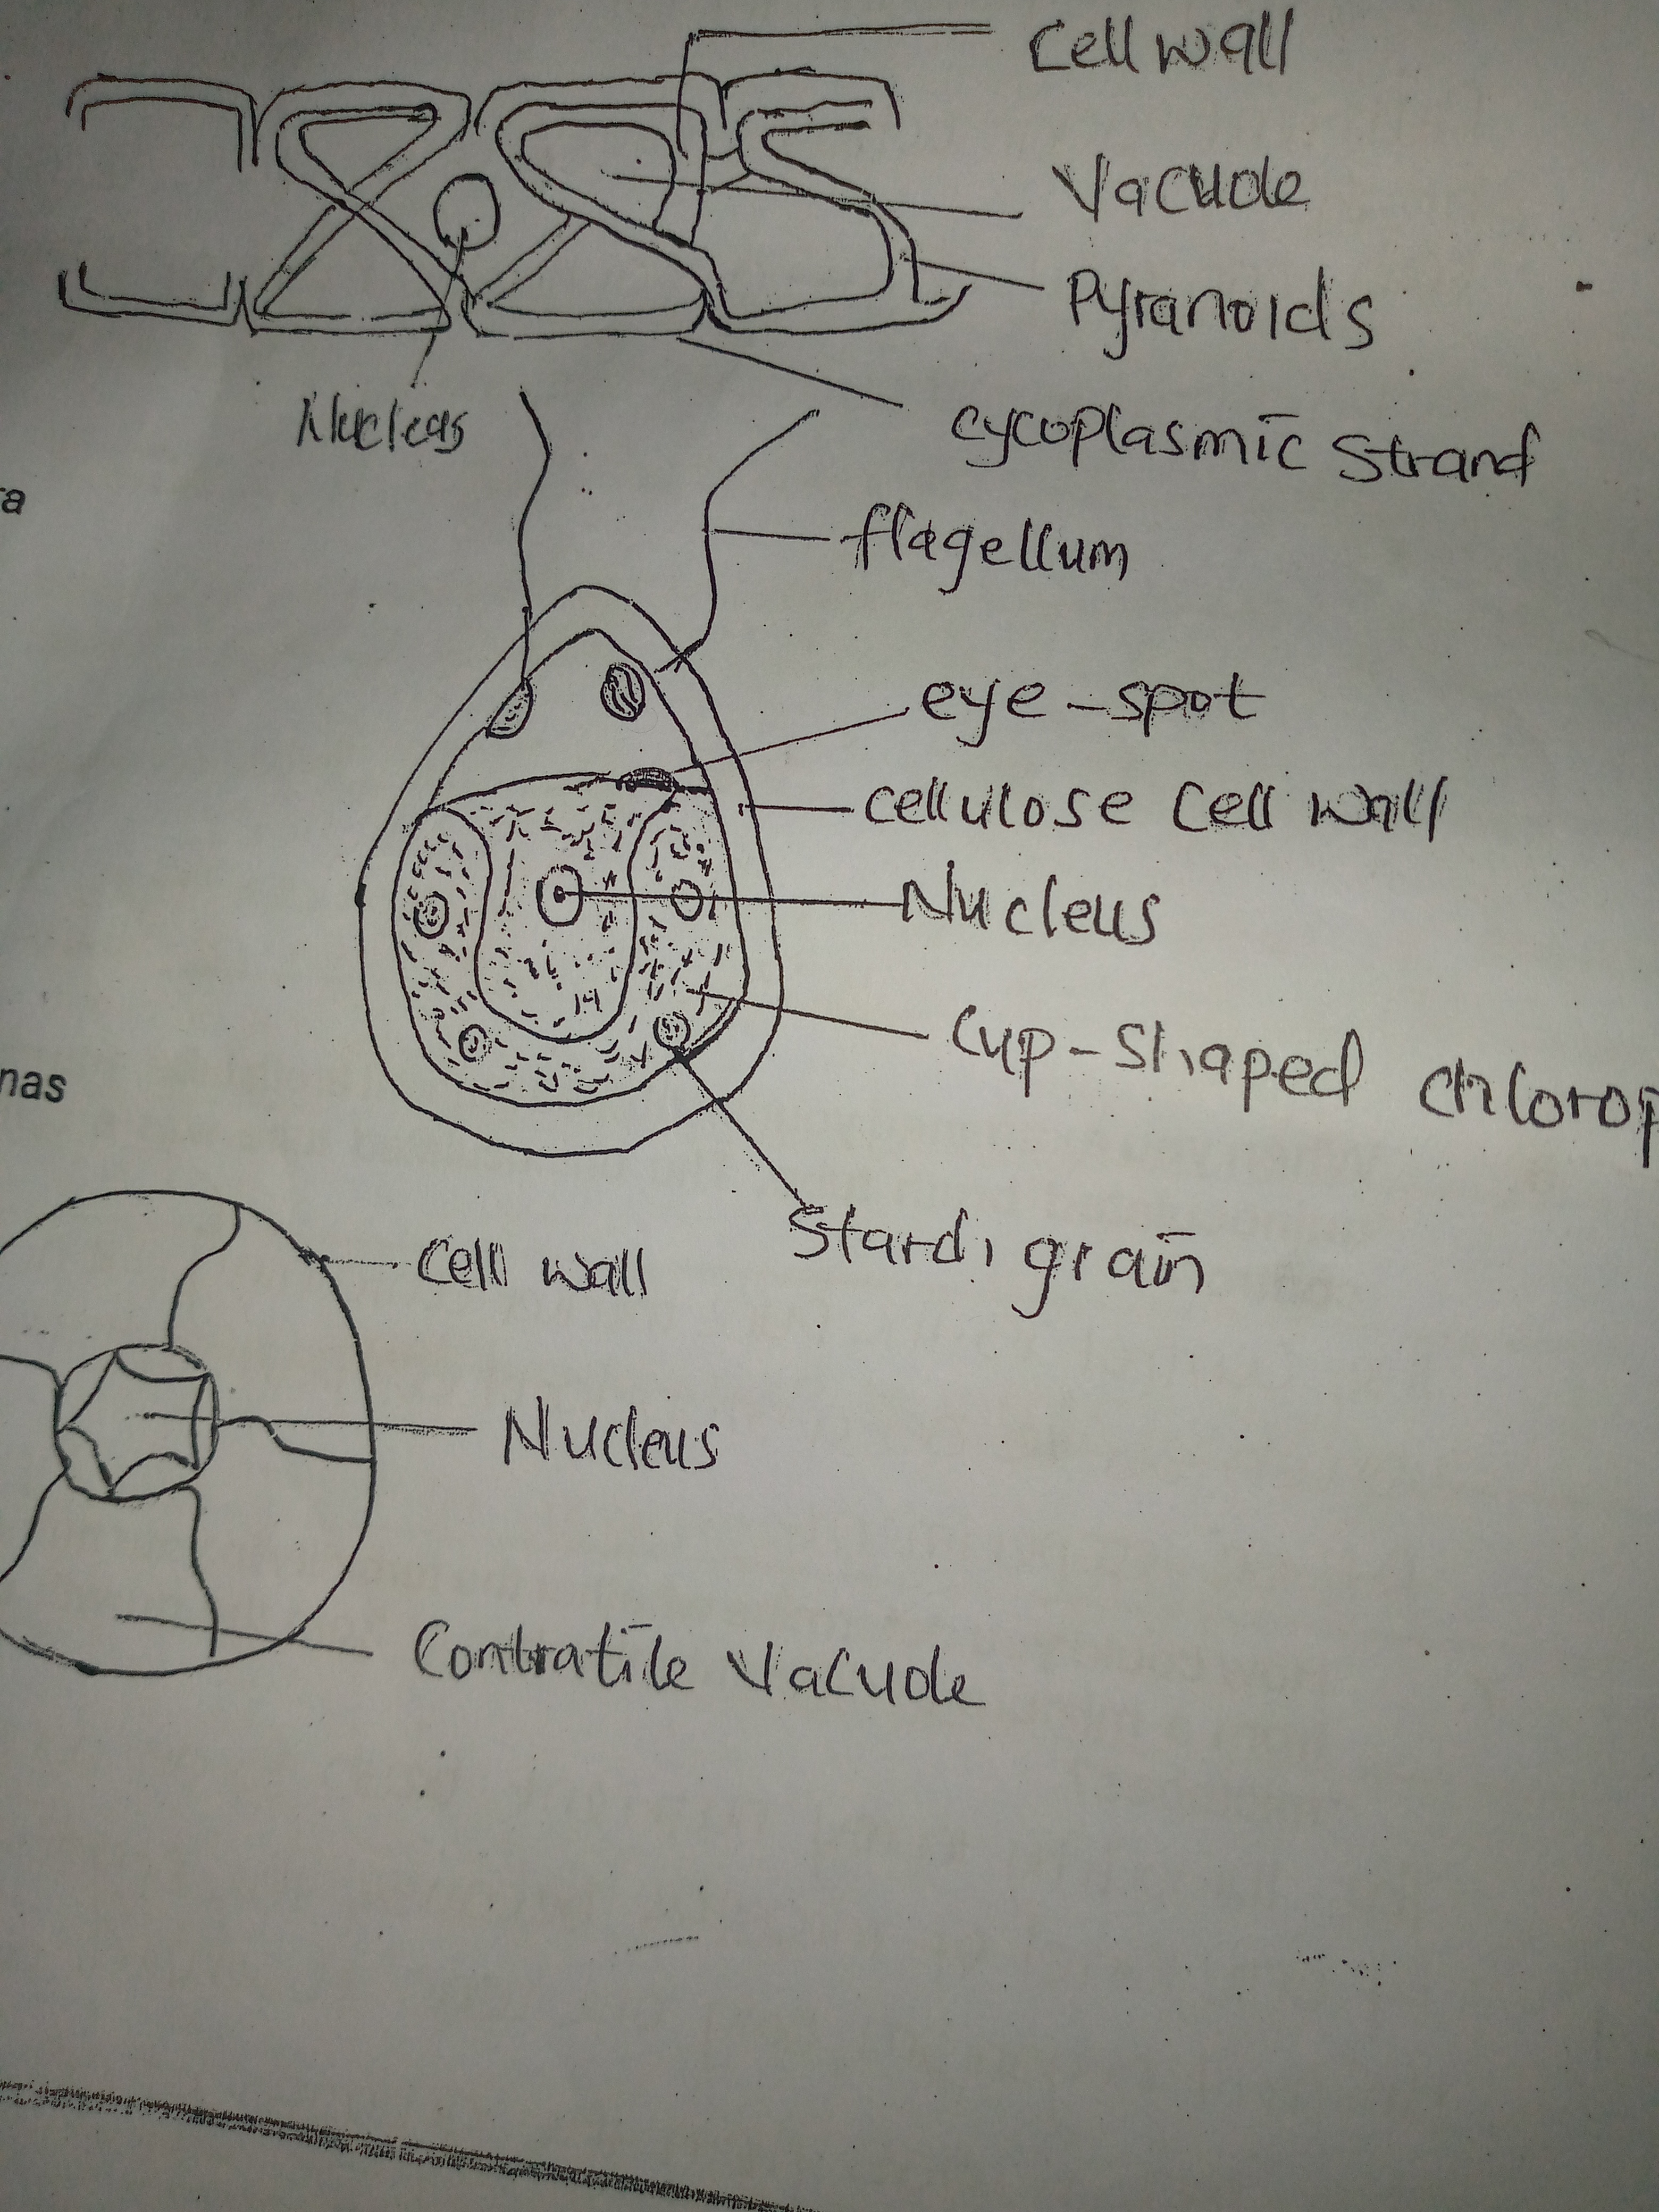 Cell wall
Vacuole
Pyranoids
Nucleus
cycoplasmic Strand
ra
flagellum
eye-spot
cellulose cell wall
Nucleus
Cup-shaped chlorop
nas
Starch grain
Cell wall
Nucleus
Contratile Vacuole